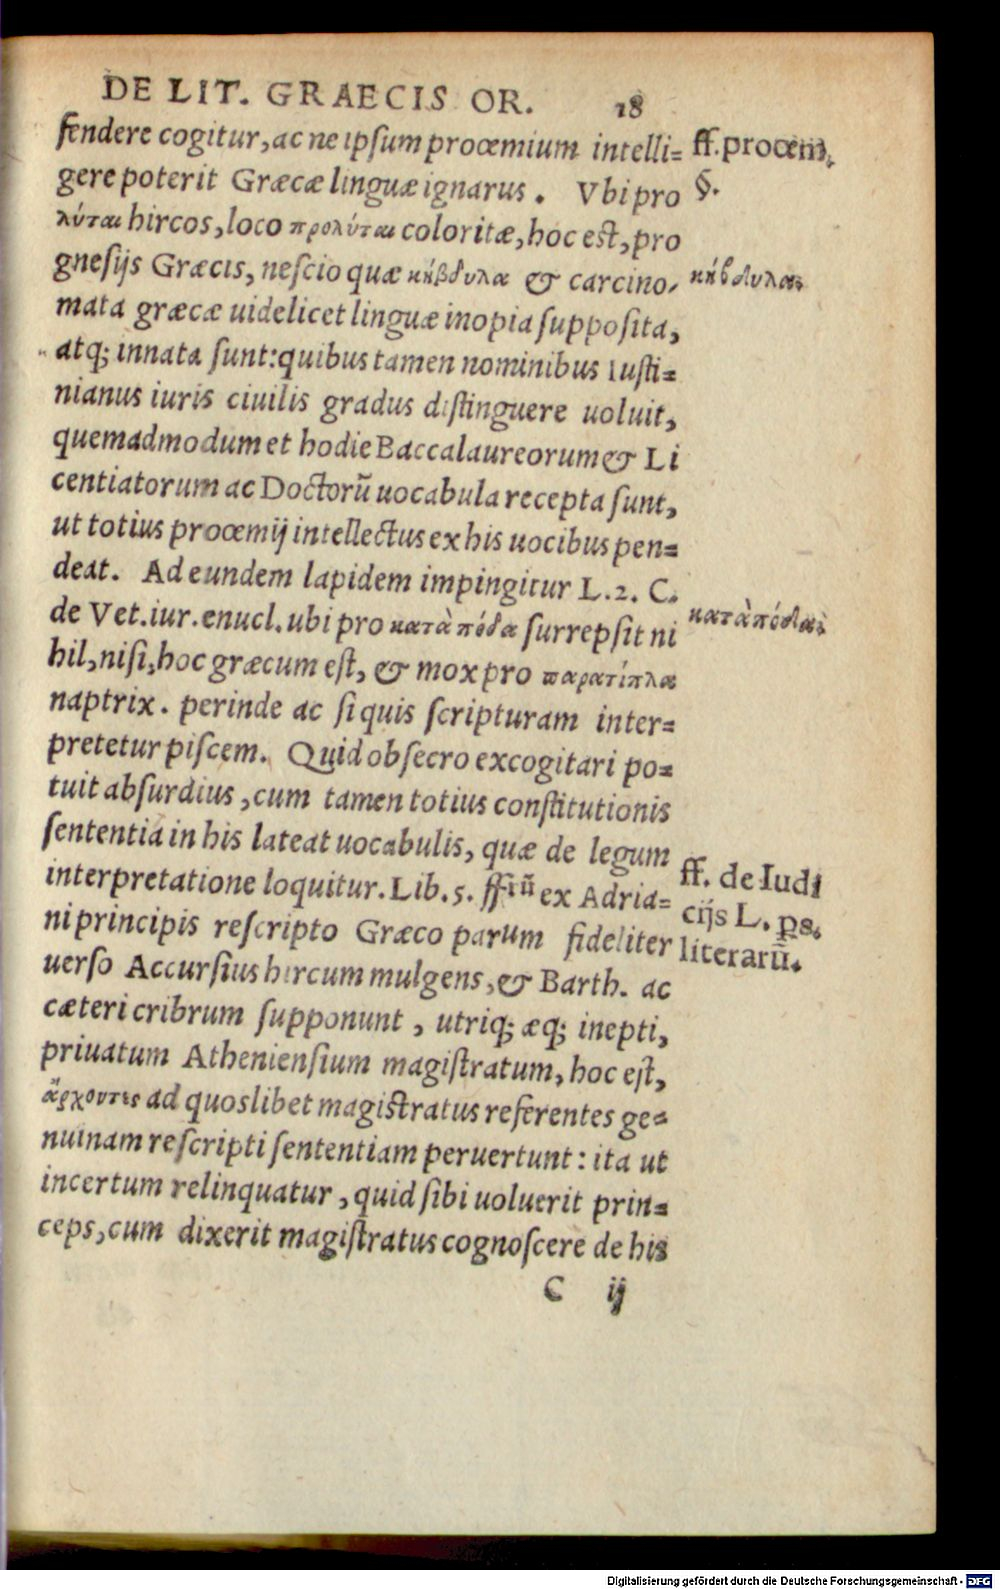 DE LIT. GRAECIS OR. 18
fendere cogitur, ac ne ipsum prooemium intelli=
ff. prooem.
gere poterit Græcæ linguæ ignarus. Vbi pro
§.
λύται hircos, loco προλύται coloritæ, hoc est, pro
gnesijs Græcis, nescio quæ κήβδυλα & carcino-
κήβδυλα.
mata græcæ uidelicet linguæ inopia supposita,
atq; innata sunt: quibus tamen nominibus Iusti=
nianus iuris ciuilis gradus distinguere uoluit,
quemadmodum et hodie Baccalaureorum & Li
centiatorum ac Doctorū uocabula recepta sunt,
ut totius prooemij intellectus ex his uocibus pen=
deat. Ad eundem lapidem impingitur L.2. C.
de Vet. iur. enucl. ubi pro κατὰ πόδα surrepsit ni
κατὰ πόδα.
hil, nisi, hoc græcum est, & mox pro παρατίπλα
naptrix. perinde ac si quis scripturam inter=
pretetur piscem. Quid obsecro excogitari po=
tuit absurdius, cum tamen totius constitutionis
sententia in his lateat uocabulis, quæ de legum
interpretatione loquitur. Lib. 5. ffrū ex Adria=
ff. de Iudi
cijs L. ꝑs.
literarū.
ni principis rescripto Græco parum fideliter
uerso Accursius hircum mulgens, & Barth. ac
cæteri cribrum supponunt, utriq; æq; inepti,
priuatum Atheniensium magistratum, hoc est,
ἄρχοντες ad quoslibet magistratus referentes ge=
nuinam rescripti sententiam peruertunt: ita ut
incertum relinquatur, quid sibi uoluerit prin=
ceps, cum dixerit magistratus cognoscere de his
C ij
Digitalisierung gefördert durch die Deutsche Forschungsgemeinschaft - DFG